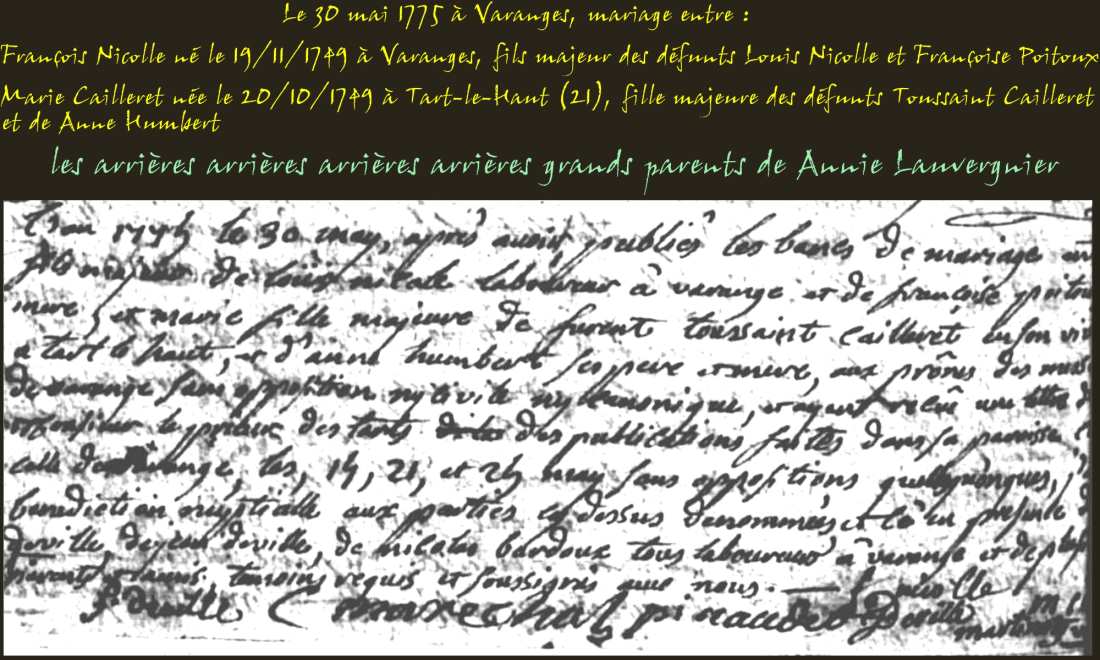 Le 30 mai 1775 à Varanges, mariage entre :
François Nicolle né le 19/11/1749 à Varanges, fils majeur des défunts Louis Nicolle et Françoise Poitoux
Marie Cailleret née le 20/10/1749 à Tart-le-Haut (21), fille majeure des défunts Toussaint Cailleret
et de Anne Humbert
les arrières arrières arrières arrières grands parents de Annie Lauvergnier
L'an 1775 le 30 may, après avoir publiés les bancs de mariage
fils majeur de louis nicolle laboureur à varange et de françoise
mere, et marie fille majeure de furent toussaint Cailleret en son
a tart le haut, et d'anne humbert ses pere et mere, aux prônes des
de varange sans opposition ny civile ny canonique, et ayant une
des tarts des publications faites dans sa paroisse
varange, les, 14, 21, et 25 may sans oppositions quelquonques,
benediction nuptialle aux parties cy dessus denommées et ce en
deville, de jean deville, de nicolas bardoux tous laboureurs à varange et de
temoins requis et soussignés avec nous.
marechal deville